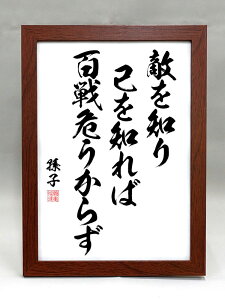 敵を知り
己を知れば
百戦危うからず
孫子